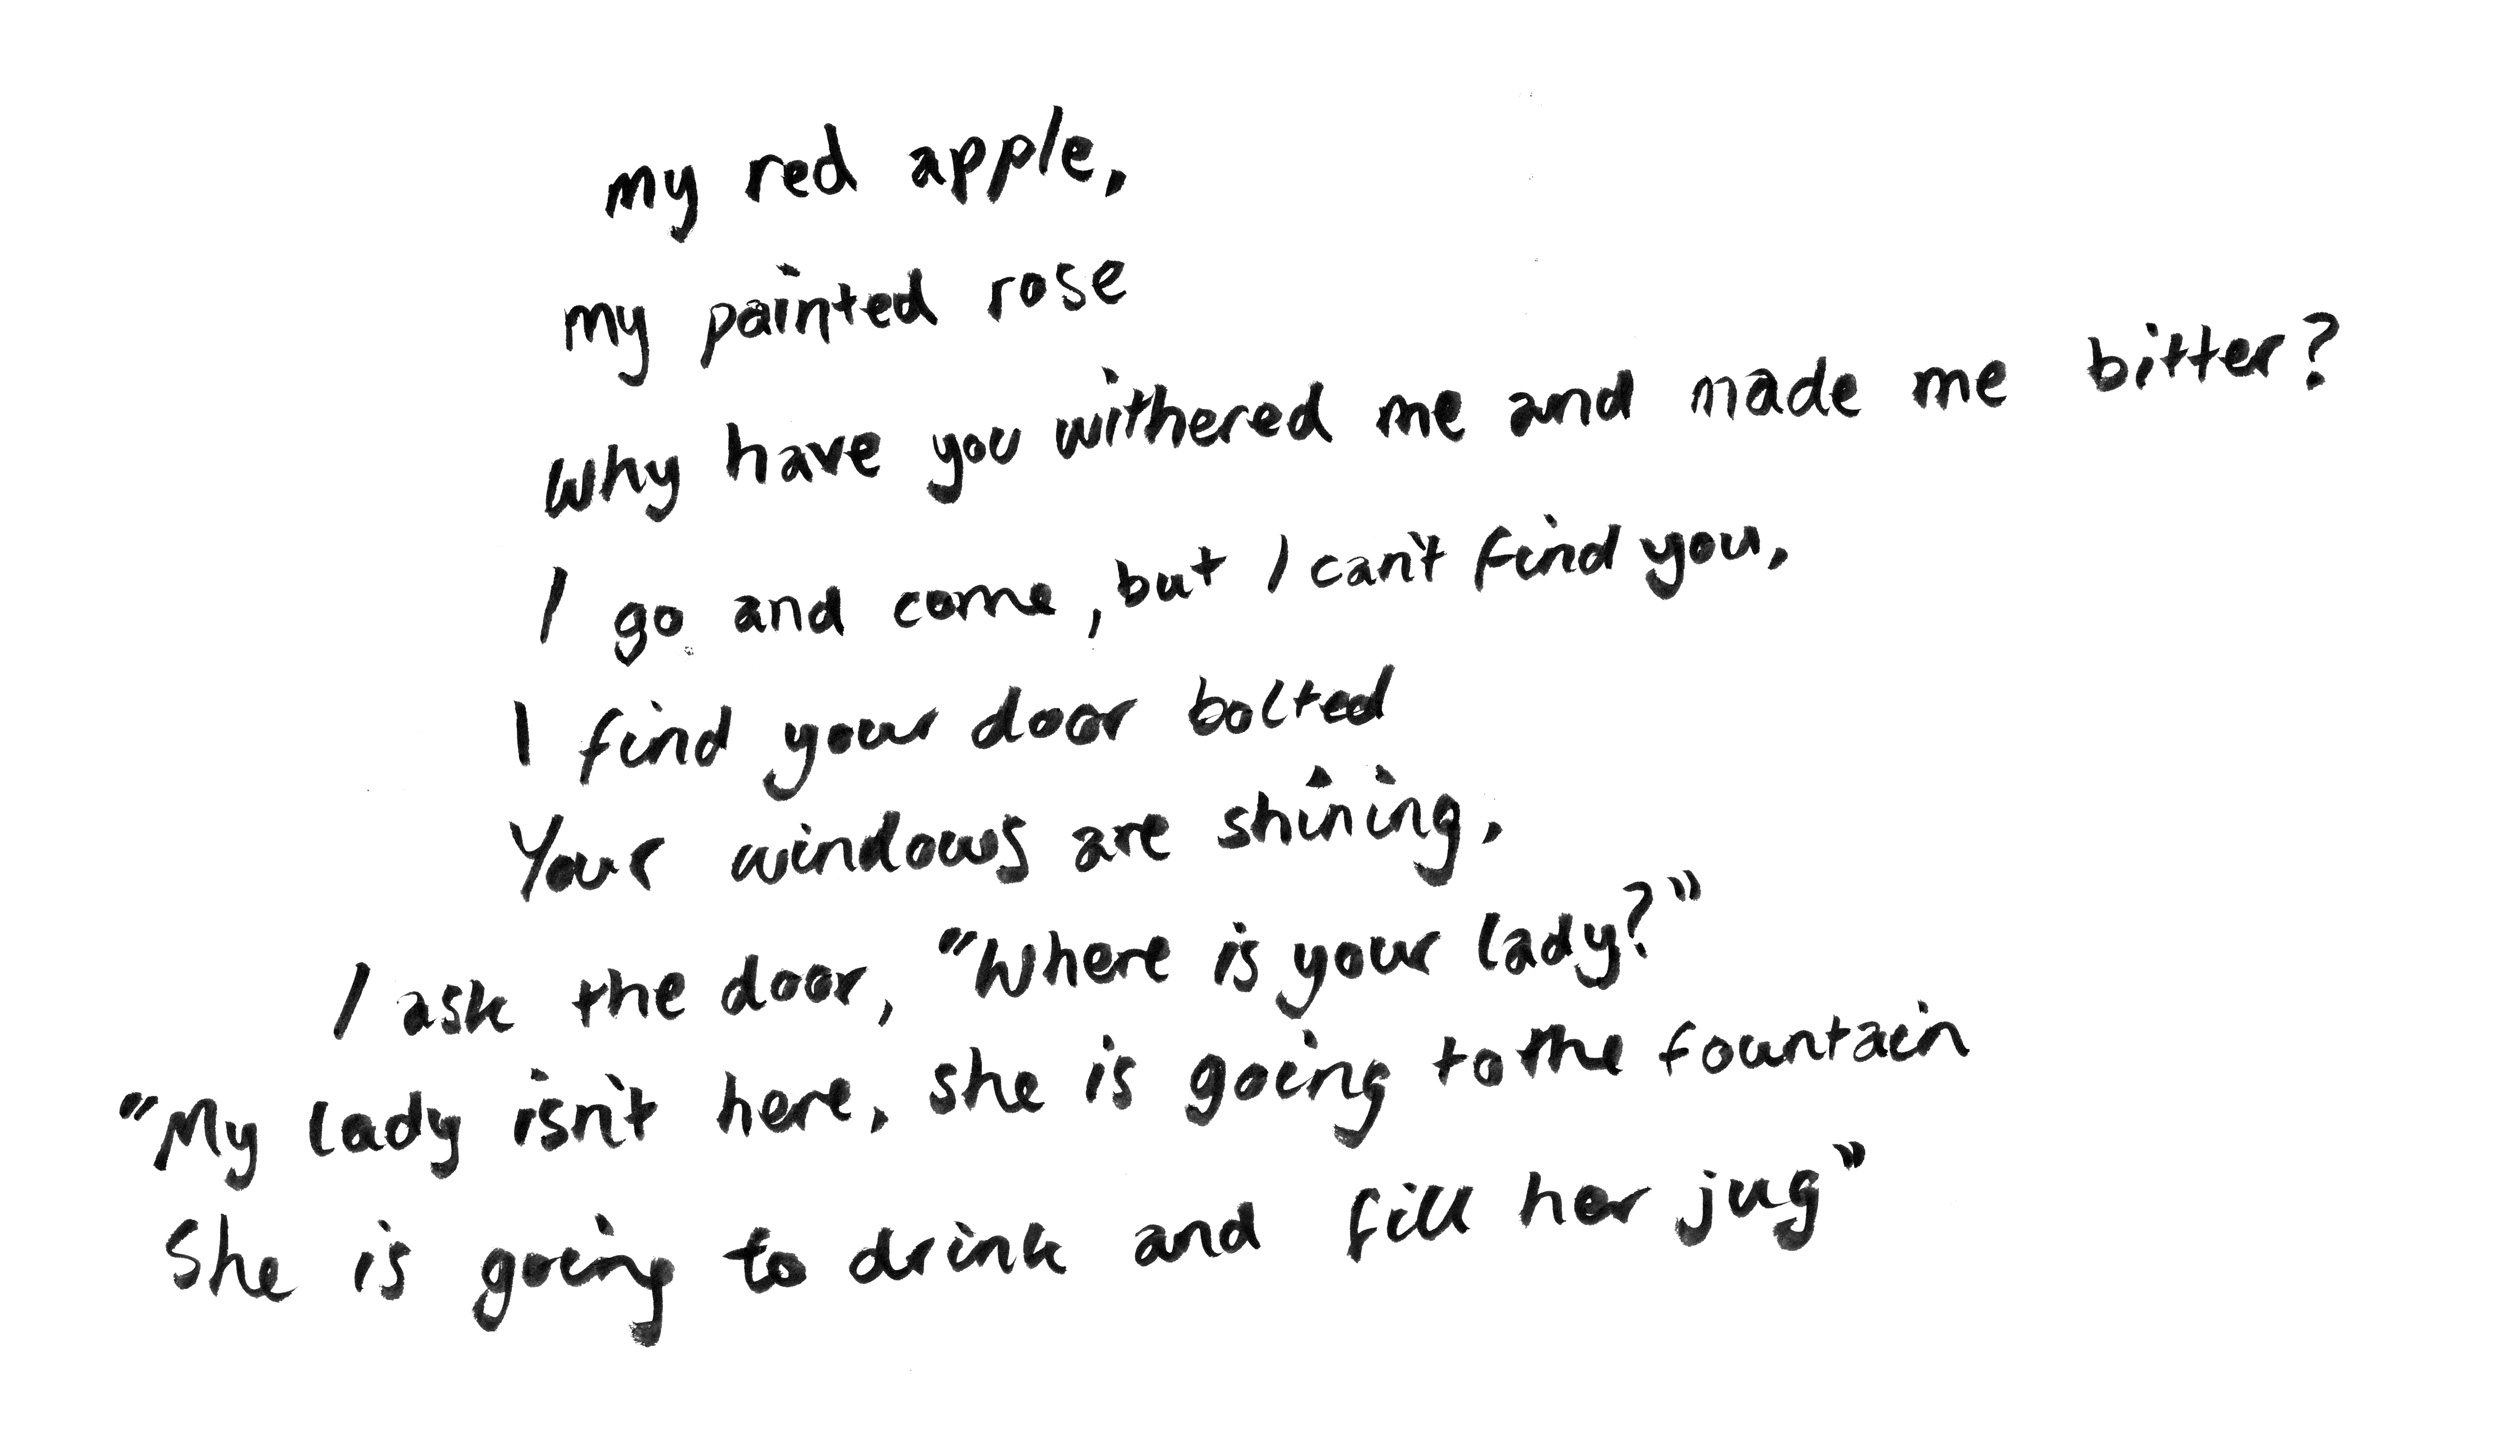 my red apple,
my painted rose
why have you withered me and made me bitter?
I go and come, but I can't find you,
I find your door bolted
Your windows are shining,
I ask the door, "Where is your lady?"
"My lady isn't here, she is going to the fountain
She is going to drink and fill her jug"